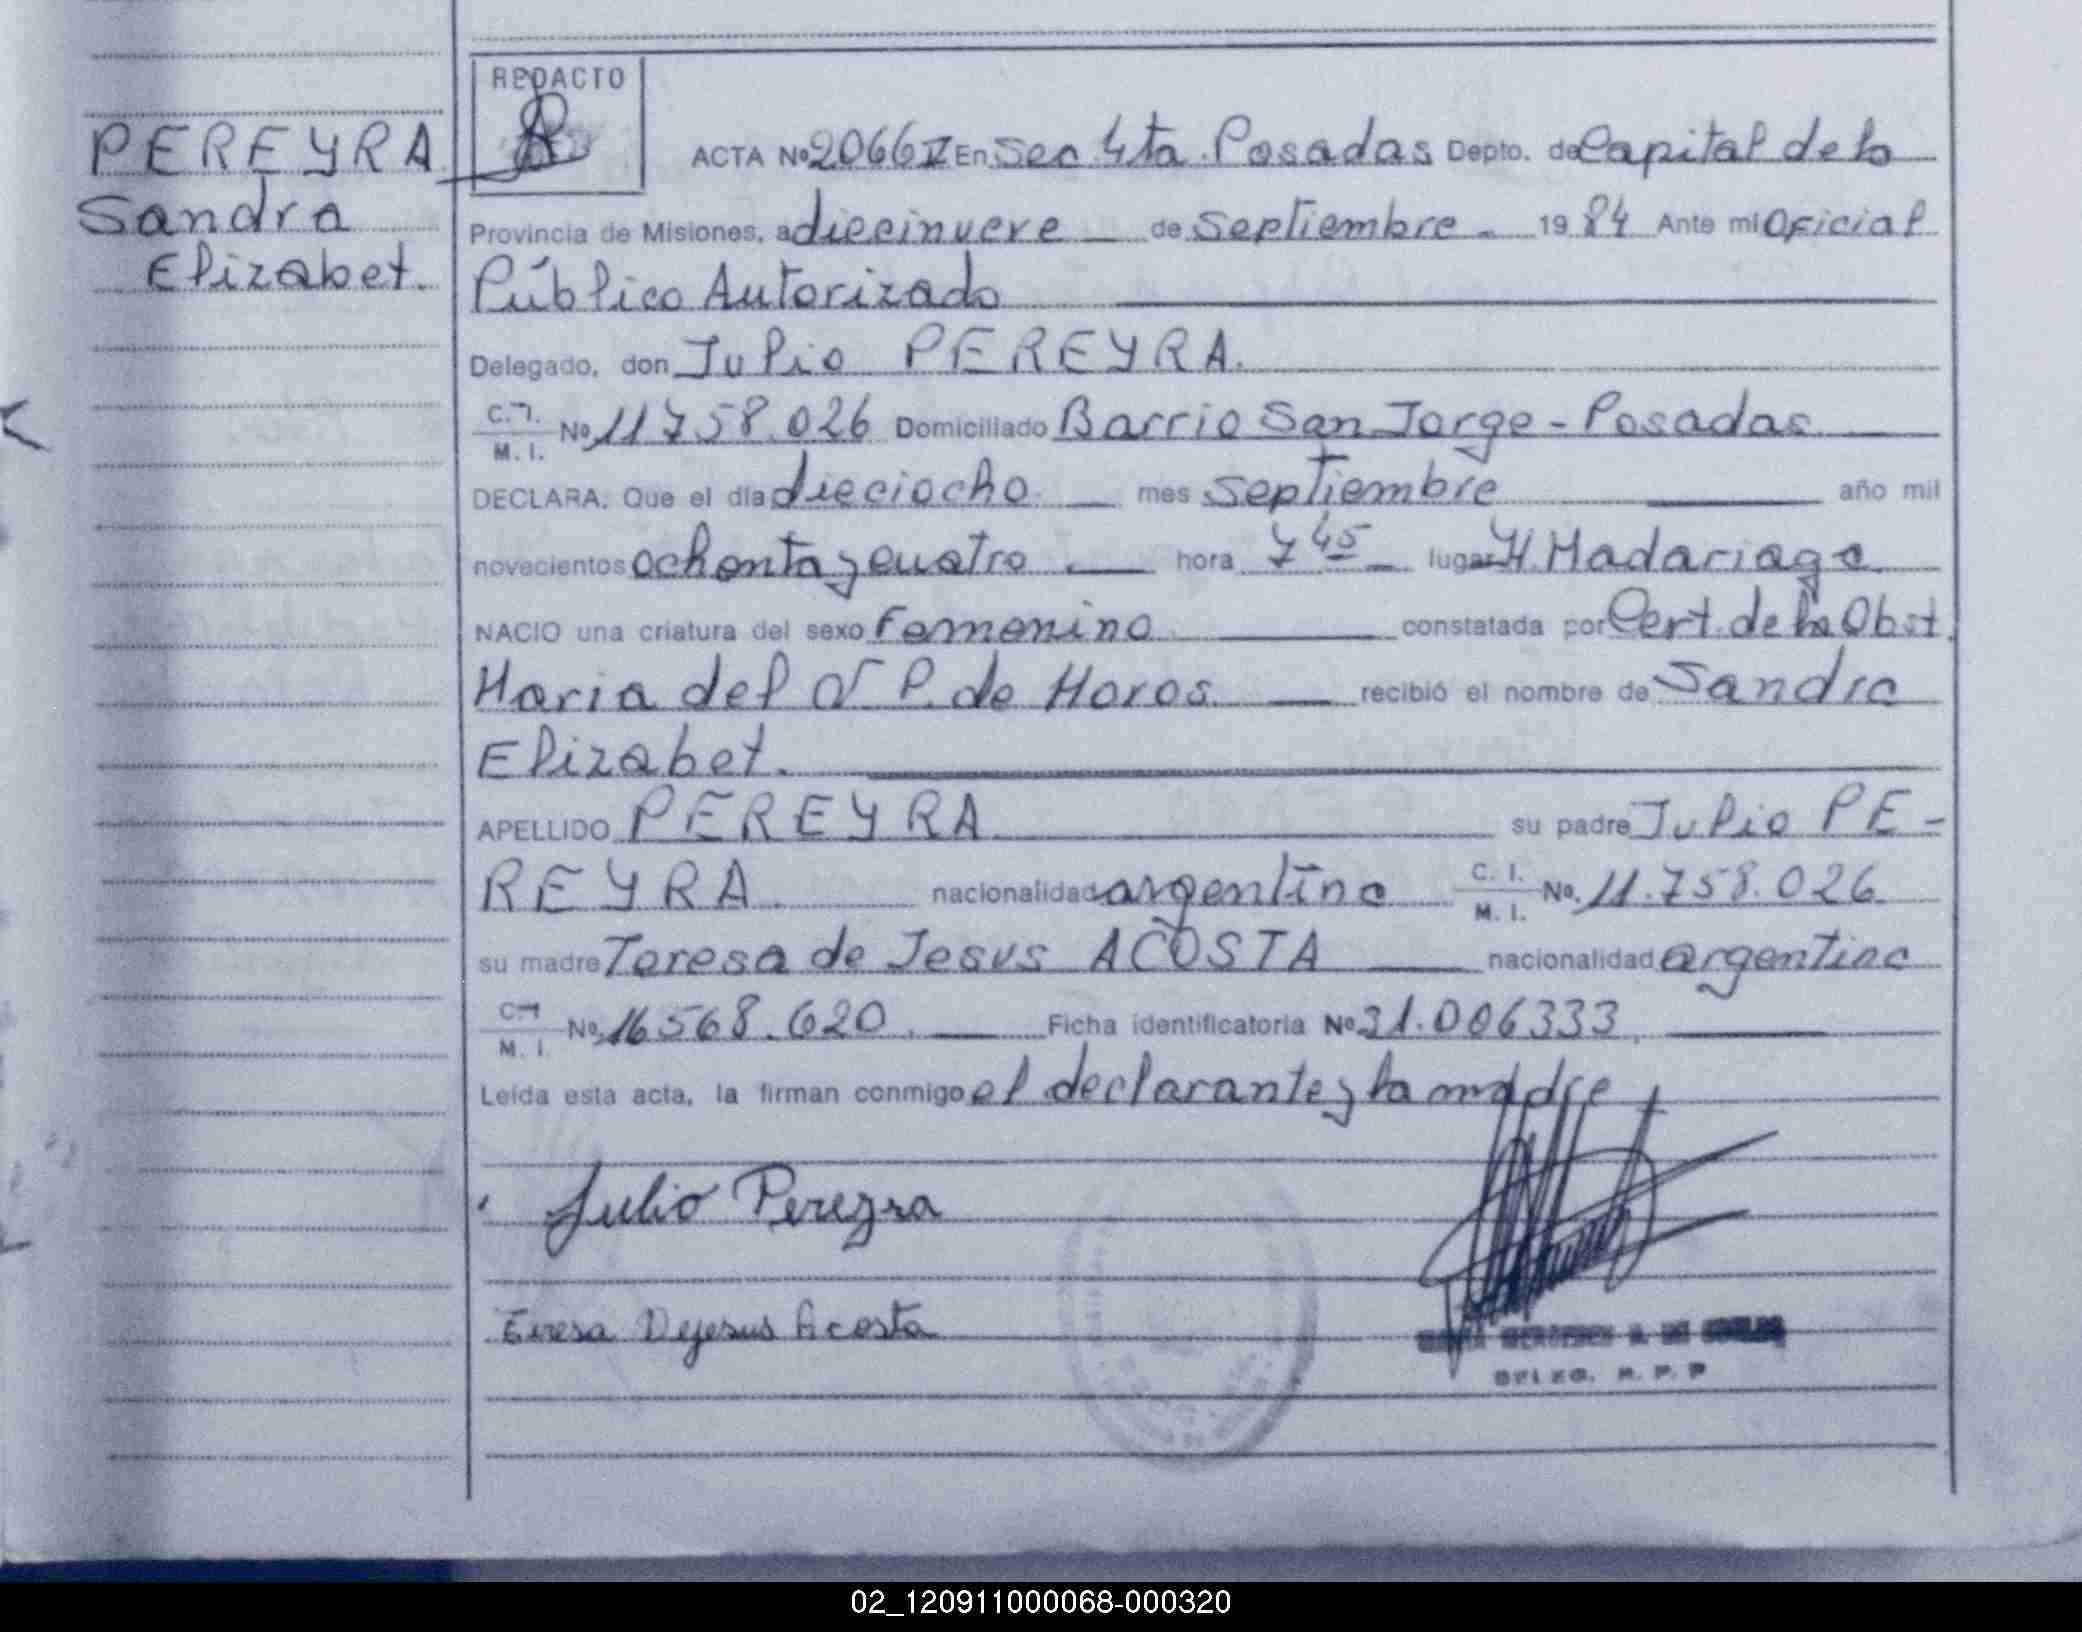 REDACTO
PEREYRA
Sandra
Elizabet.
ACTA Nº 2066 I En Sec 4ta. Posadas Depto. de Capital de la
Provincia de Misiones, a diecinueve de septiembre. 1984 Ante mi Oficial
Público Autorizado
Delegado, don Julio PEREYRA.
C.I.
M. I. Nº 11758.026 Domiciliado Barrio San Jorge - Posadas
DECLARA: Que el día dieciocho mes septiembre año mil
novecientos ochenta y cuatro hora 7 45 lugar H. Madariaga
NACIO una criatura del sexo femenino constatada por Cert. de la Obst.
Maria del P. de recibió el nombre de Sandra
Elizabet.
APELLIDO PEREYRA su padre Julio PE-
REYRA. nacionalidad argentina C. I.
M. I. No. 11.758.026
su madre Teresa de Jesus ACOSTA nacionalidad argentina
C.I.
M. I. No. 16568.620. Ficha identificatoria Nº 31.006333
Leída esta acta, la firman conmigo el declarante y la madre
Julio Pereyra
Teresa Dejesus Acosta
02_120911000068-000320